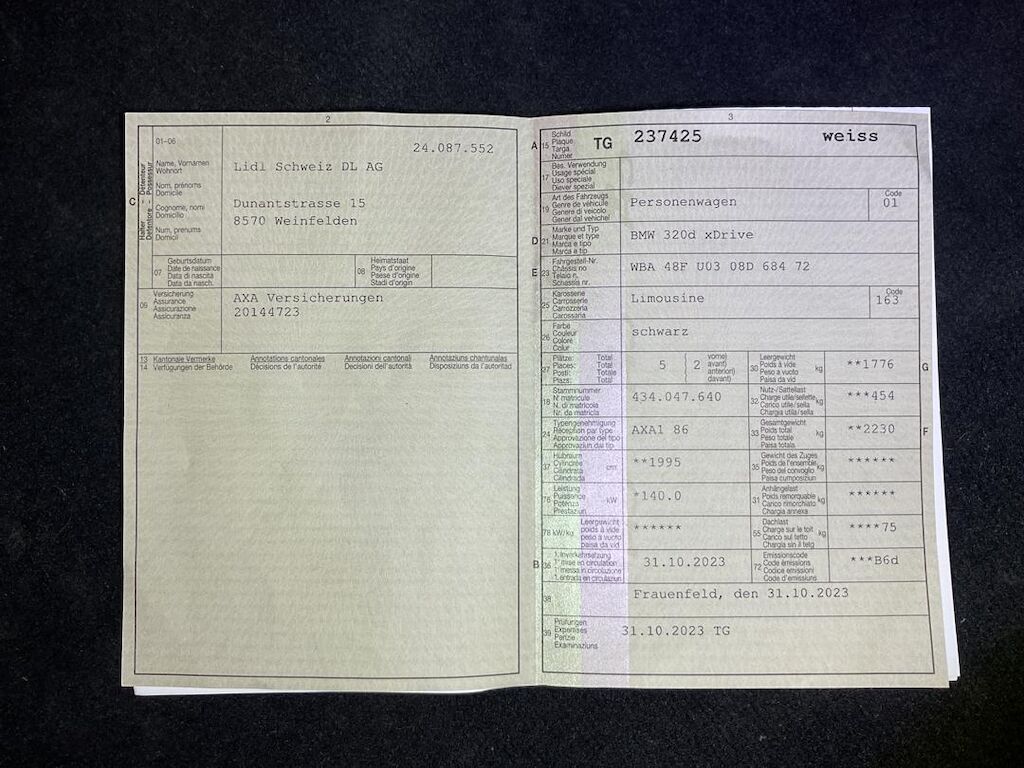 2
01-06
24.087.552
C
Halter - Détenteur
Detentore - Possessur
Name, Vornamen
Wohnort
Nom, prénoms
Domicile
Cognome, nomi
Domicilio
Num, prenums
Domicil
Lidl Schweiz DL AG
Dunantstrasse 15
8570 Weinfelden
07
Geburtsdatum
Date de naissance
Data di nascita
Data da nasch.
08
Heimatstaat
Pays d'origine
Paese d'origine
Stadi d'origin
09
Versicherung
Assurance
Assicurazione
Assicuranza
AXA Versicherungen
20144723
13 Kantonale Vermerke
14 Verfügungen der Behörde
Annotations cantonales
Décisions de l'autorité
Annotazioni cantonali
Decisioni dell'autorità
Annotaziuns chantunalas
Disposiziuns da l'autoritad
3
A 15
Schild
Plaque
Targa
Numer
TG 237425 weiss
17
Bes. Verwendung
Usage spécial
Uso speciale
Diever spezial
19
Art des Fahrzeugs
Genre de véhicule
Genere di veicolo
Gener dal vehichel
Personenwagen
Code
01
D 21
Marke und Typ
Marque et type
Marca e tipo
Marca e tip
BMW 320d xDrive
E 23
Fahrgestell-Nr.
Châssis no
Telaio n.
Schassis nr.
WBA 48F U03 08D 684 72
25
Karosserie
Carrosserie
Carrozzeria
Carossaria
Limousine
Code
163
26
Farbe
Couleur
Colore
Colur
schwarz
27
Plätze: Total
Places: Total
Posti: Totale
Plazs: Total
5
2
vorne)
avant)
anteriori)
davant)
30
Leergewicht
Poids à vide
Peso a vuoto
Paisa da vid
kg
**1776
G
18
Stammnummer
N° matricule
N. di matricola
Nr. da matricla
434.047.640
32
Nutz-/Sattellast
Charge utile/sellette
Carico utile/sella
Chargia utila/sella
kg
***454
24
Typengenehmigung
Réception par type
Approvazione del tipo
Approvaziun dal tip
AXA1 86
33
Gesamtgewicht
Poids total
Peso totale
Paisa totala
kg
**2230
F
37
Hubraum
Cylindrée
Cilindrata
Cilindrada
cm³
**1995
35
Gewicht des Zuges
Poids de l'ensemble
Peso del convoglio
Paisa cumposiziun
kg
******
76
Leistung
Puissance
Potenza
Prestaziun
kW
*140.0
31
Anhängelast
Poids remorquable
Carico rimorchiato
Chargia annexa
kg
******
78 kW/kg
Leergewicht
poids à vide
peso a vuoto
paisa da vid
******
55
Dachlast
Charge sur le toit
Carico sul tetto
Chargia sin il tetg
kg
****75
B 36
1. Inverkehrsetzung
1re mise en circulation
1a messa in circolazione
1. entrada en circulaziun
31.10.2023
72
Emissionscode
Code émissions
Codice emissioni
Code d'emissiuns
***B6d
38
Frauenfeld, den 31.10.2023
39
Prüfungen
Expertises
Perizie
Examinaziuns
31.10.2023 TG